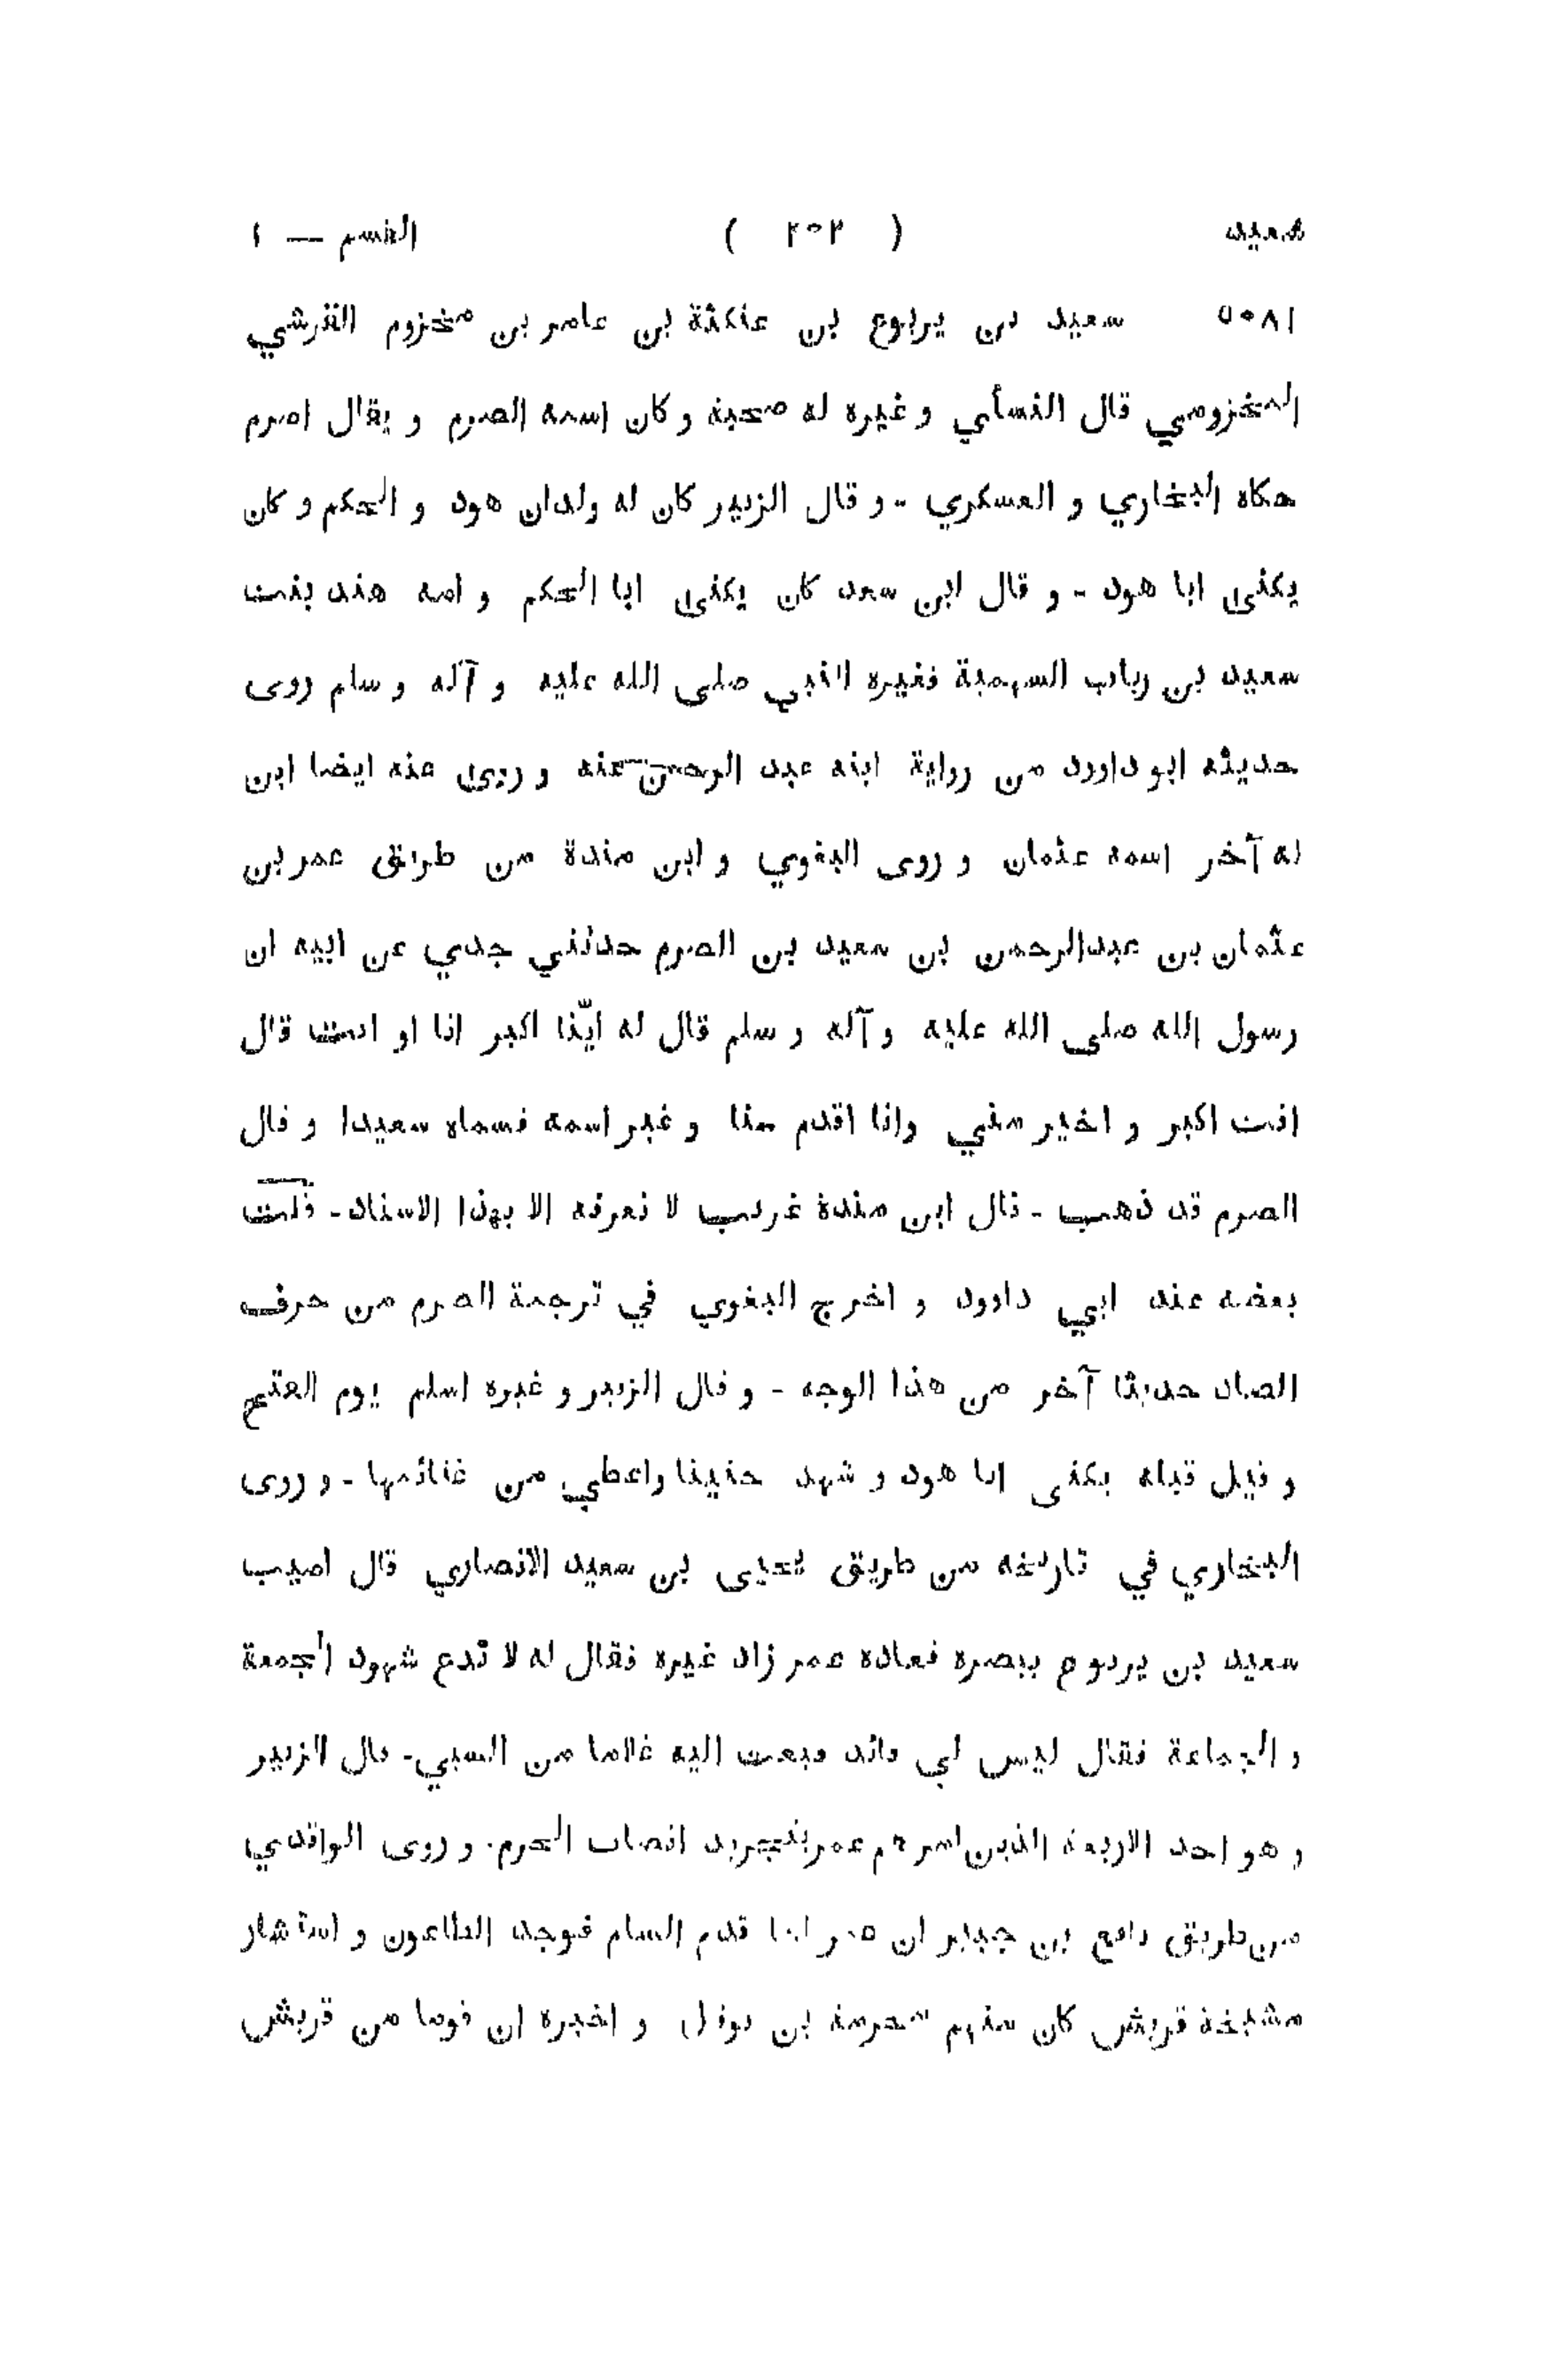 سعيد ( ٢٠٢ ) القسم — ١
٥٠٨١ سعيد بن يربوع بن عنكثة بن عامر بن مخزوم القرشي
المخزومي قال النسأي و غيره له صحبة و كان اسمه الصرم و يقال اصرم
حكاه البخاري و العسكري - و قال الزبير كان له ولدان هود و الحكم و كان
يكنى ابا هود - و قال ابن سعد كان يكنى ابا الحكم و امه هند بنت
سعيد بن رباب السهمية فغيره النبي صلى الله عليه و آله و سلم روى
حديثه ابو داوود من رواية ابنه عبد الرحمن عنه و روى عنه ايضا ابن
له آخر اسمه عثمان و روى البغوي و ابن مندة من طريق عمر بن
عثمان بن عبدالرحمن بن سعيد بن الصرم حدثني جدي عن ابيه ان
رسول الله صلى الله عليه و آله و سلم قال له ايّنا اكبر انا او انت قال
انت اكبر و اخير مني وانا اقدم سنا و غير اسمه فسماه سعيدا و قال
الصرم قد ذهب - قال ابن مندة غريب لا نعرفه الا بهذا الاسناد - قلت
بعضه عند ابي داوود و اخرج البغوي في ترجمة الصرم من حرف
الصاد حديثا آخر من هذا الوجه - و قال الزبير و غيره اسلم يوم الفتح
و قيل قبله يكنى ابا هود و شهد حنينا واعطي من غنائمها - و روى
البخاري في تاريخه من طريق يحيى بن سعيد الانصاري قال اصيب
سعيد بن يربوع ببصره فعاده عمر زاد غيره فقال له لا تدع شهود الجمعة
و الجماعة فقال ليس لي قائد فبعث اليه غلاما من السبي - قال الزبير
و هو احد الاربعة الذين امرهم عمر بتجريد انصاب الحرم . و روى الواقدي
من طريق نافع بن جبير ان عمر لما قدم الشام فوجد الطاعون و استشار
مشيخة قريش كان منهم مخرمة بن نوفل و اخبره ان قوما من قريش